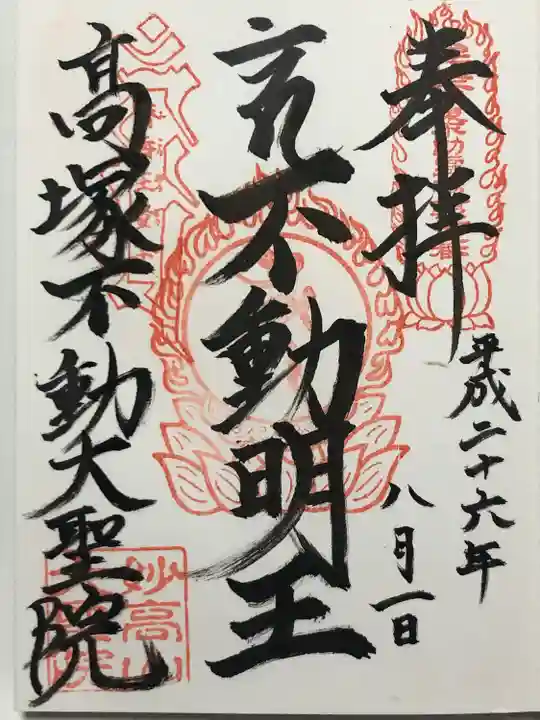 奉拝
平成二十六年
八月一日
不動明王
高塚不動大聖院
妙高山